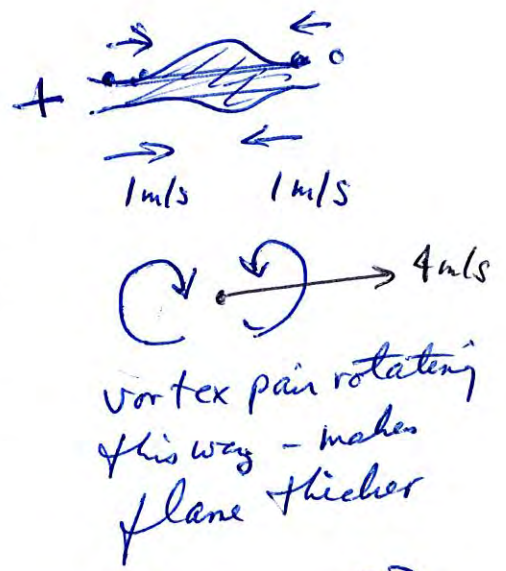 +
1m/s 1m/s
4m/s
vortex pair rotating
this way - makes
flame thicker